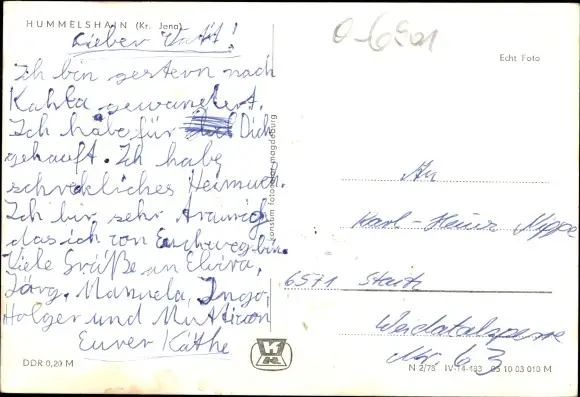 HUMMELSHAIN (Kr. Jena)
Lieber Vati!
Ich bin gestern nach
Kahla gewandert.
Ich habe für Dich
gekauft. Ich habe
schrekliches Heimweh.
Ich bin sehr traurig
das ich von Euch weg bin.
Viele Grüße an Elvira,
Jörg, Manuela, Ingo,
Holger und Mutti von
Euer Käthe
DDR 0,20 M
konsum foto magdeburg
Echt Foto
An
Karl-Heinz Nippe
6571 Staitz
Weidatalsperre
Nr. 63
N 2/78 IV-14-483 05 10 03 010 M